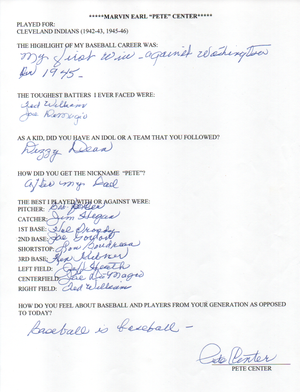 *****MARVIN EARL "PETE" CENTER*****
PLAYED FOR:
CLEVELAND INDIANS (1942-43, 1945-46)
THE HIGHLIGHT OF MY BASEBALL CAREER WAS:
My first win - against Washington
in 1945.
THE TOUGHEST BATTERS I EVER FACED WERE:
Ted Williams
Joe DiMagio
AS A KID, DID YOU HAVE AN IDOL OR A TEAM THAT YOU FOLLOWED?
Dizzy Dean
HOW DID YOU GET THE NICKNAME "PETE"?
After my Dad
THE BEST I PLAYED WITH OR AGAINST WERE:
PITCHER:
CATCHER: Jim Hegan
1ST BASE: Hal
2ND BASE: Joe Gordon
SHORTSTOP: Lou Boudreau
3RD BASE: Ken Keltner
LEFT FIELD: Jeff Heath
CENTERFIELD: Joe DiMagio
RIGHT FIELD: Ted Williams
HOW DO YOU FEEL ABOUT BASEBALL AND PLAYERS FROM YOUR GENERATION AS OPPOSED
TO TODAY?
Baseball is baseball -
Pete Center
PETE CENTER